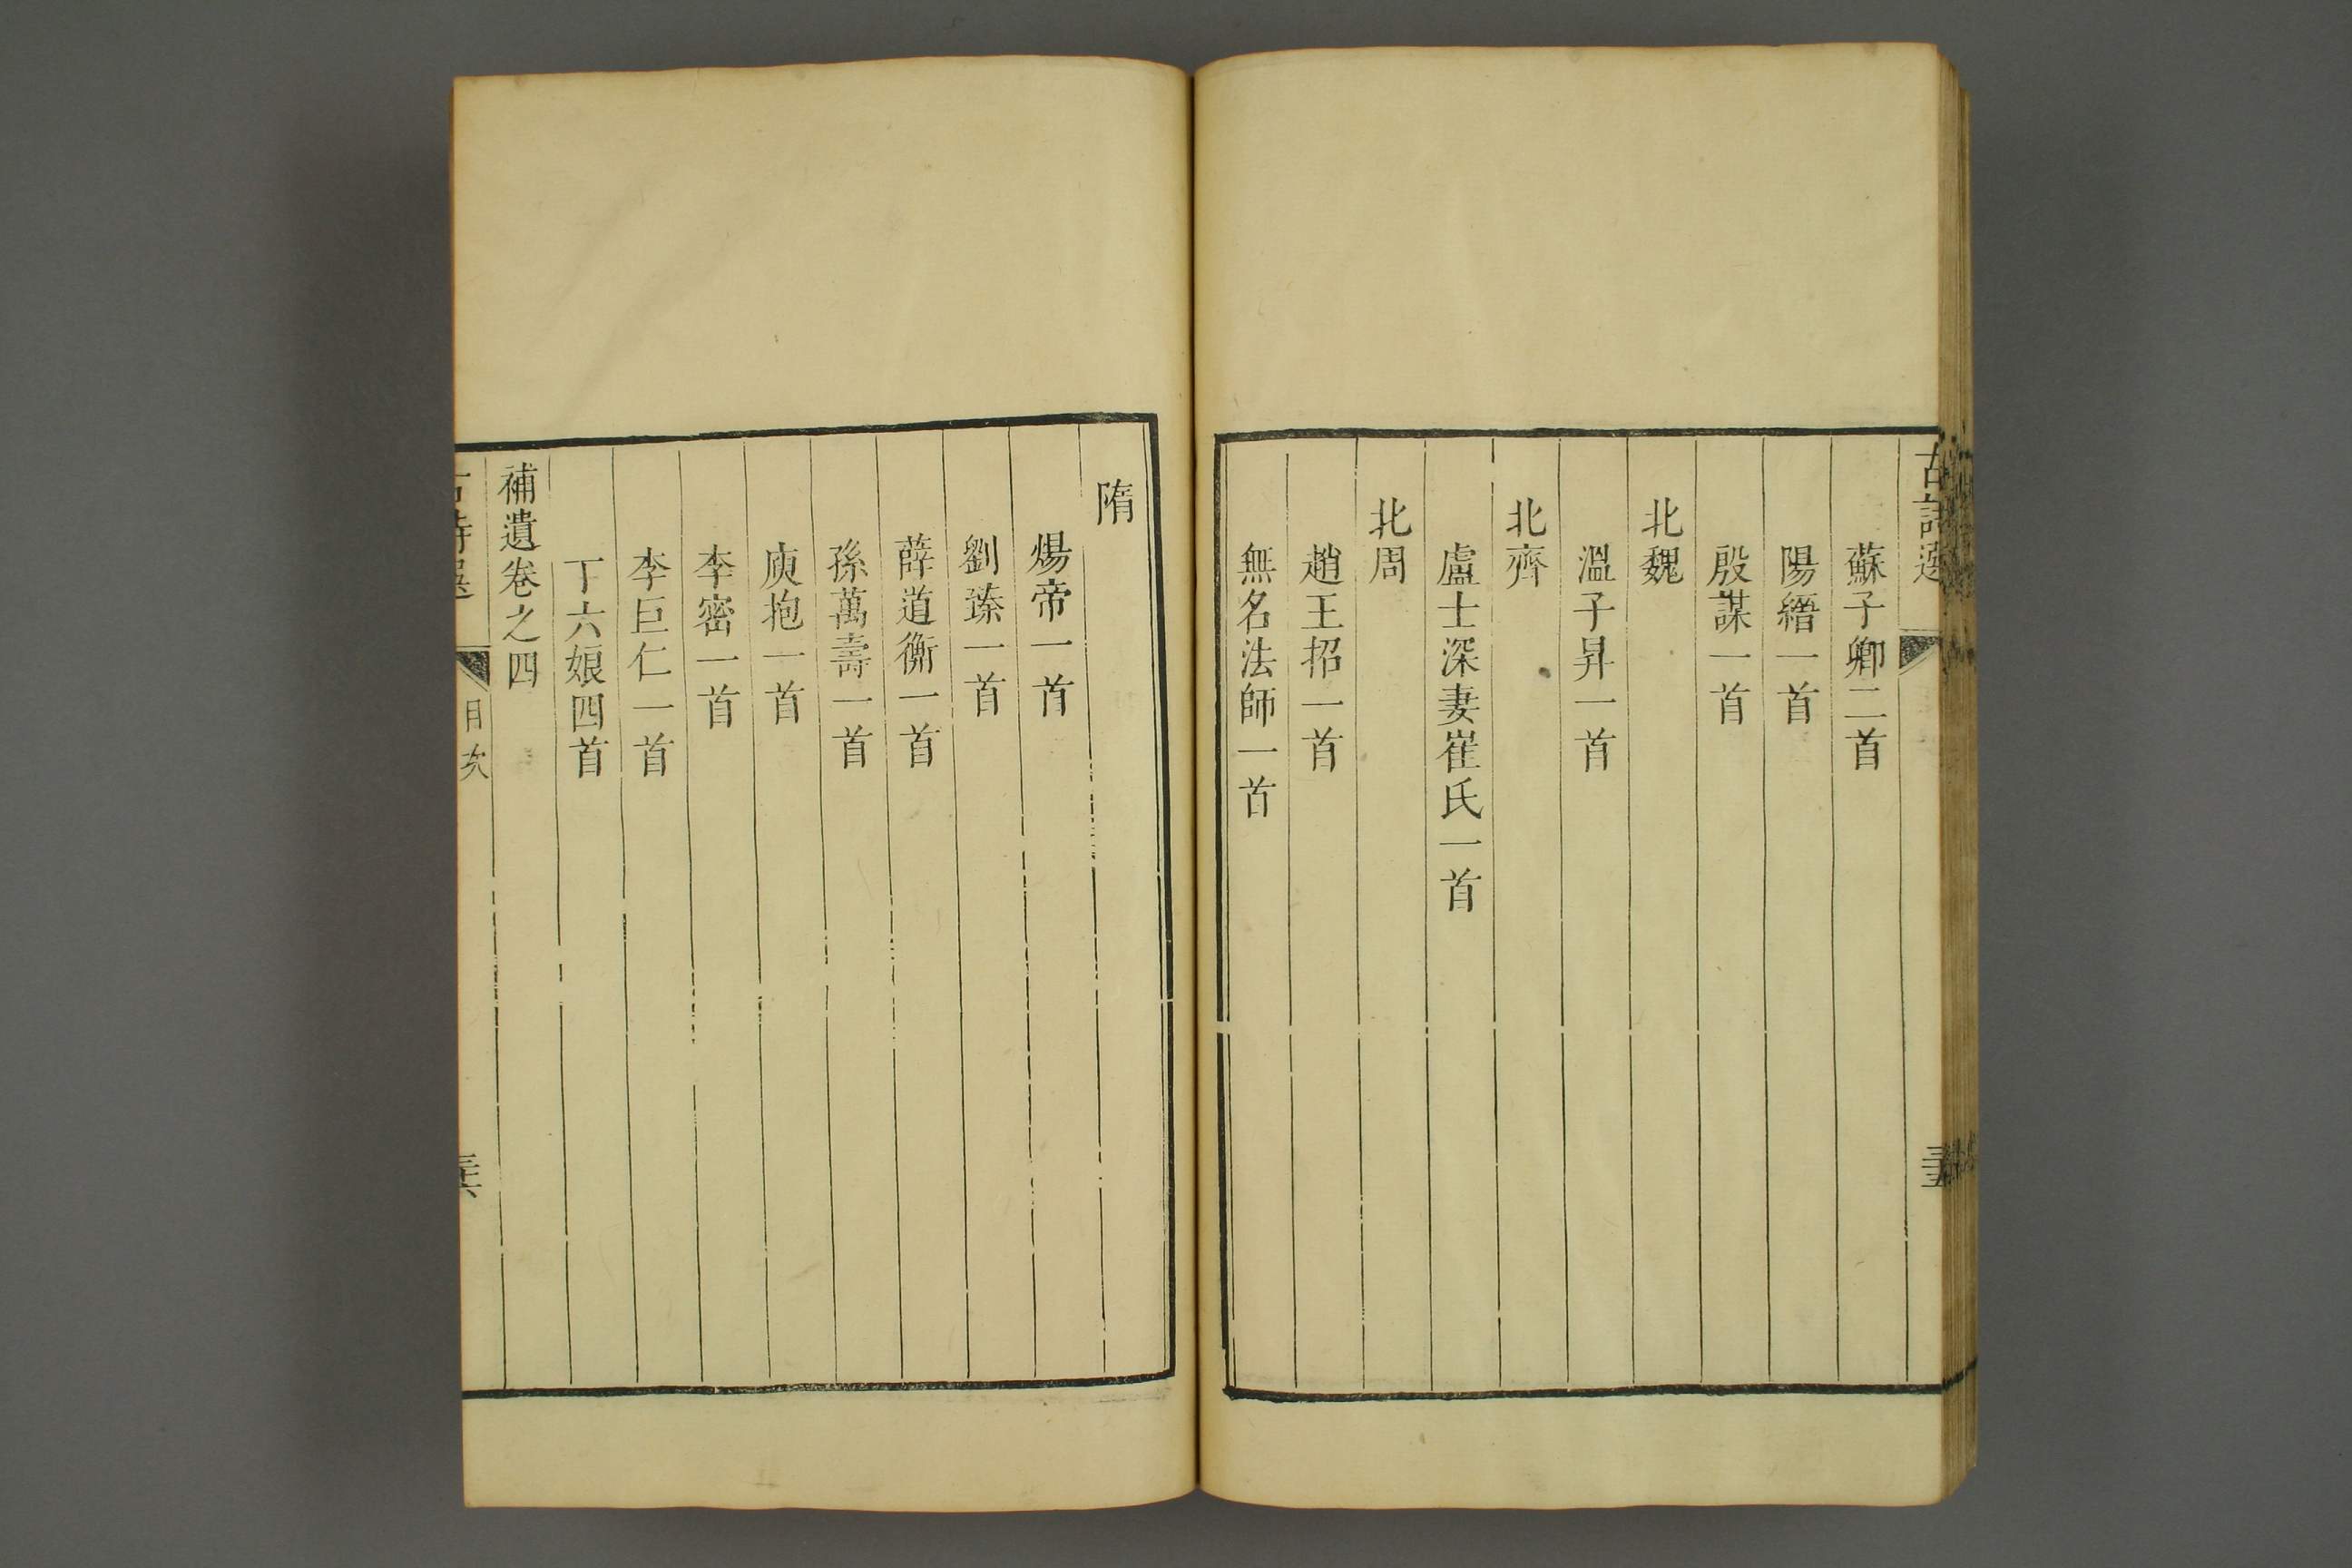 古詩選
蘇子卿二首
陽縉一首
殷謀一首
北魏
溫子昇一首
北齊
盧士深妻崔氏一首
北周
趙王招一首
無名法師一首
隋
煬帝一首
劉臻一首
薛道衡一首
孫萬壽一首
庾抱一首
李密一首
李巨仁一首
丁六娘四首
補遺卷之四
古詩選 目次